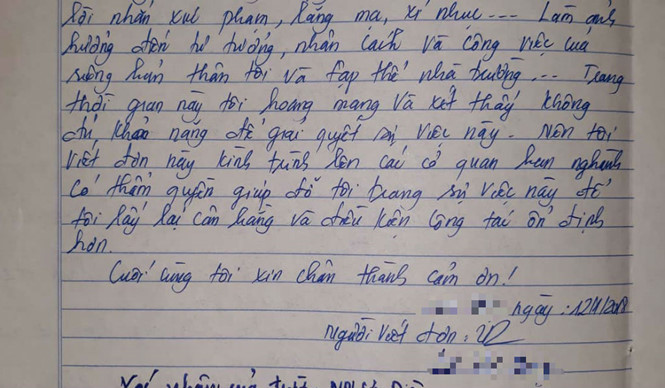 lời nhắn xúc phạm, lăng mạ, xỉ nhục... Làm ảnh
hưởng đến tư tưởng, nhân cách và công việc của
riêng bản thân tôi và tập thể nhà trường... Trong
thời gian này tôi hoang mang và xét thấy không
đủ khả năng để giải quyết sự việc này. Nên tôi
viết đơn này kính trình lên các cơ quan ban nghành
có thẩm quyền giúp đỡ tôi trong sự việc này để
tôi lấy lại cân bằng và điều kiện công tác ổn định
hơn.
Cuối cùng tôi xin chân thành cảm ơn!
ngày: 12/1/2018
Người viết đơn:
Xác nhận của